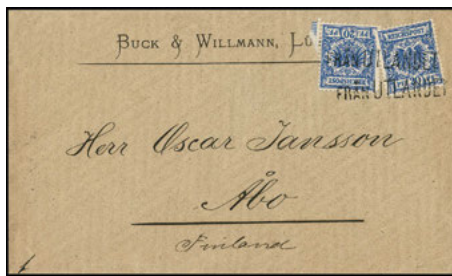 BUCK & WILLMANN, LÜ
REICHSPOST
FRÅN UTLANDET
FRÅN UTLANDET
Herr Oscar Jansson
Åbo
Finland